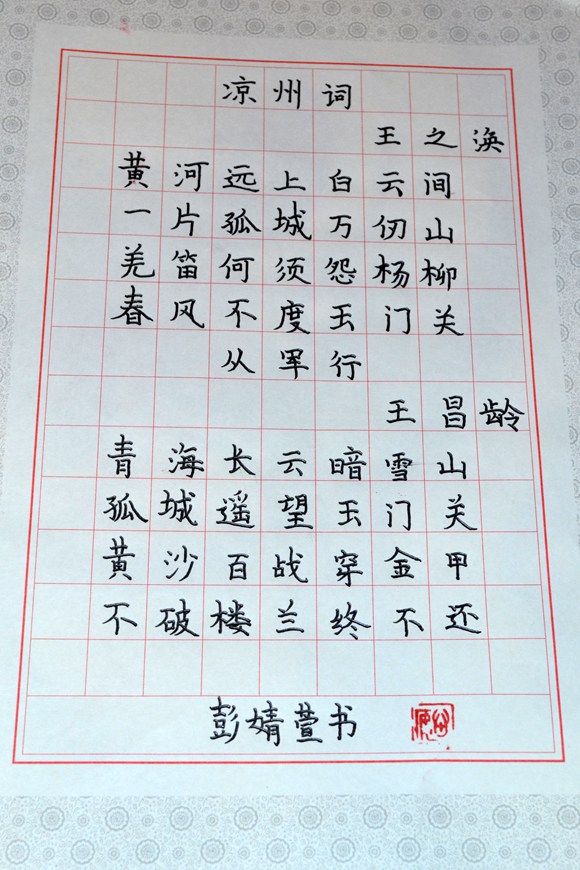 凉州词
王之涣
黄河远上白云间
一片孤城万仞山
羌笛何须怨杨柳
春风不度玉门关
从军行
王昌龄
青海长云暗雪山
孤城遥望玉门关
黄沙百战穿金甲
不破楼兰终不还
彭婧萱书